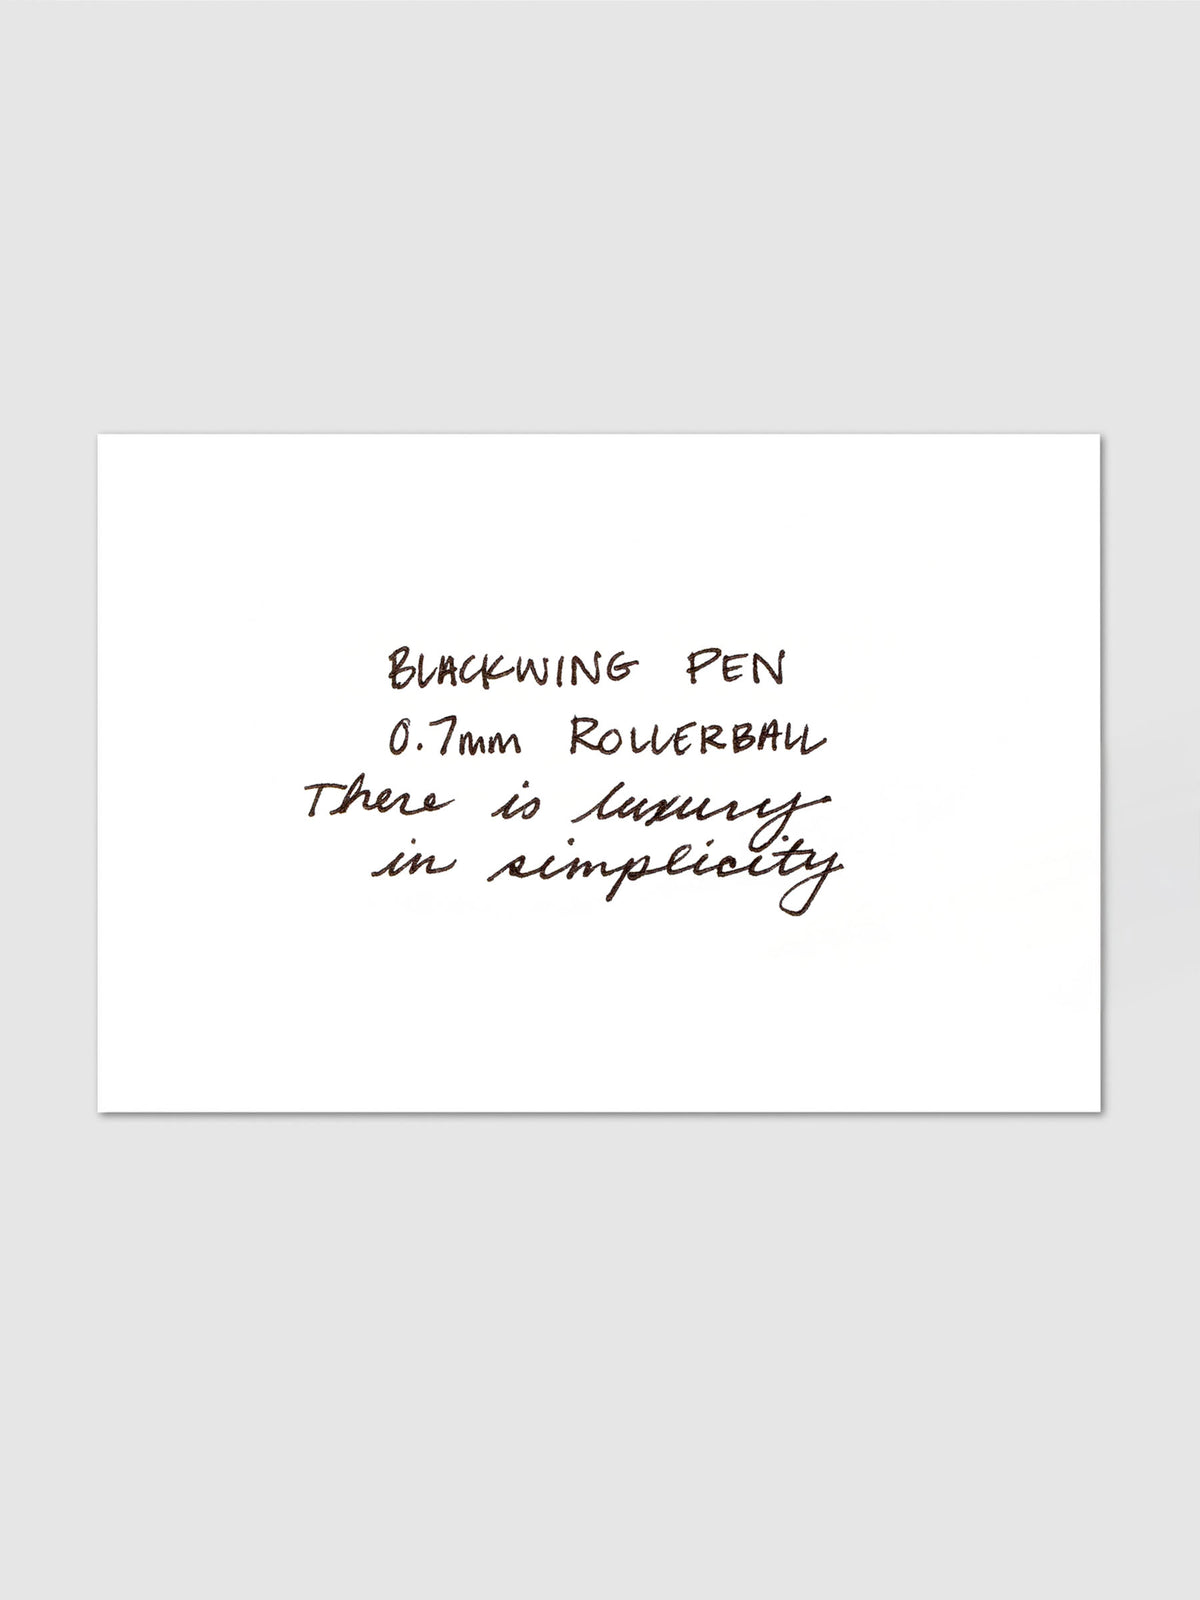 BLACKWING PEN
0.7mm ROLLERBALL
There is luxury
in simplicity